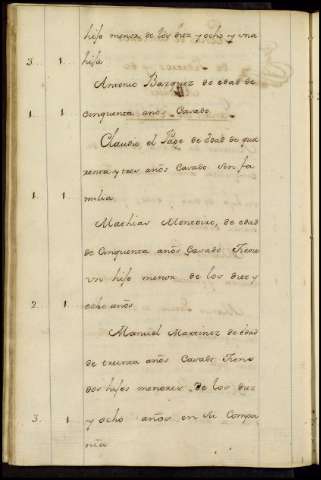 hijo menor de los diez y ocho y una
3. 1. hija
Antonio Bazquez de edad de
1. 1. cinquenta años Casado.
Claudio el Page de edad de qua
renta y tres años Casado sin fa
1. 1. milia.
Mathias Monteiro, de edad
de Cinquenta años Casado tiene
un hijo menor de los diez y
2. 1. ocho años.
Manuel Martinez de edad
de treinta años Casado tiene
dos hijos menores de los diez
3. 1. y ocho años en su Compa
ñia